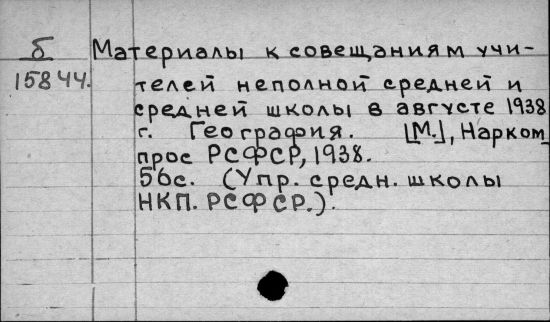 б Материалы к совещаниям учи-
15844. телей неполной средней и
средней школы в августе 1938
г. География. [М.], Нарком_
прос РСФСР, 1938.
56с. (Упр. средн. школы
НКП. РСФСР.).